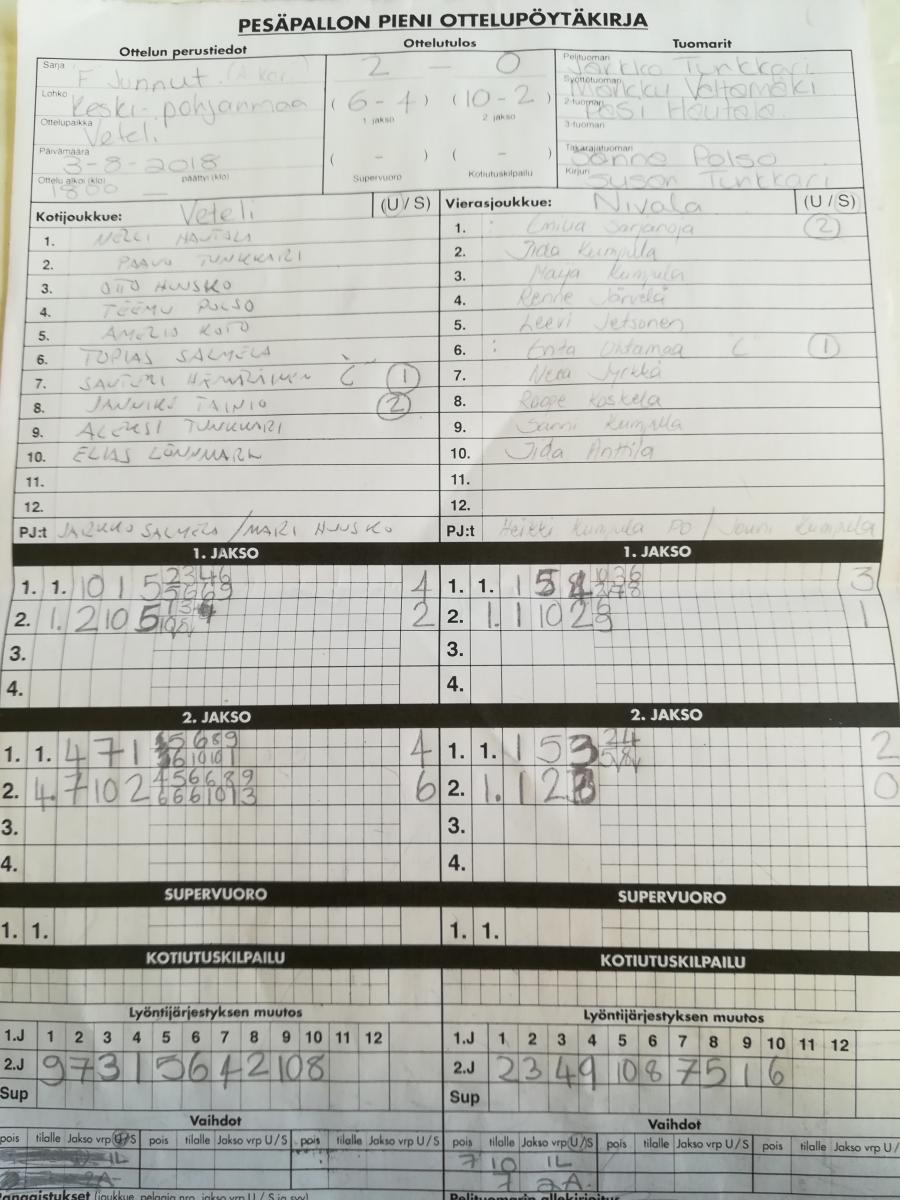 PESÄPALLON PIENI OTTELUPÖYTÄKIRJA
Ottelun perustiedot Ottelutulos Tuomarit
Sarja F Junnut
2 - 0
Pelituomari Jarkko Tunkkari
Lohko Keski-pohjanmaa
(6-4) (10-2)
1 jakso 2 jakso
Syöttötuomari Markku Valtamäki
2-tuomari Pasi Hautala
Ottelupaikka Veteli
3-tuomari
Päivämäärä 3-8-2018
( - ) ( - )
Supervuoro Kotiutuskilpailu
Takarajatuomari Sanne Polso
Ottelu alkoi (klo) 1800 päättyi (klo)
Kirjuri Susan Tunkkari
Kotijoukkue: Veteli (U/S) Vierasjoukkue: Nivala (U/S)
1. NELLI HAUTALA 1. Emilia Sarjanoja 2
2. PAAVO TUNKKARI 2. Iida Kumpula
3. OTTO HUUSKO 3. Maija Kumpula
4. TEEMU POLSO 4. Renne Järvelä
5. KOTO 5. Leevi Jetsonen
6. TOPIAS SALMELA 6. C 1
7. SANTERI C 1 7. Neea Jyrkkä
8. JANNIKE TAINIO 2 8. Roope Koskela
9. ALEKSI TUNKKARI 9. Sanni Kumpula
10. ELIAS LÖNNMARK 10. Iida Anttila
11. 11.
12. 12.
PJ:t JARKKO SALMELA / MARI HUUSKO PJ:t Heikki Kumpula PO / Jouni Kumpula
1. JAKSO 1. JAKSO
1. 1. 10 1 5 4 1. 1. 1 5 3
2. 1. 2 10 5 2 2. 1. 1 10 2 1
3. 3.
4. 4.
2. JAKSO 2. JAKSO
1. 1. 4 7 1 4 1. 1. 1 5 3 2
2. 4. 7 10 2 6 2. 1. 1 2 0
3. 3.
4. 4.
SUPERVUORO SUPERVUORO
1. 1. 1. 1.
KOTIUTUSKILPAILU KOTIUTUSKILPAILU
Lyöntijärjestyksen muutos Lyöntijärjestyksen muutos
1.J 1 2 3 4 5 6 7 8 9 10 11 12 1.J 1 2 3 4 5 6 7 8 9 10 11 12
2.J 9 7 3 1 5 6 4 2 10 8 2.J 2 3 4 9 10 8 7 5 1 6
Sup Sup
Vaihdot Vaihdot
pois tilalle Jakso vrp U/S pois tilalle Jakso vrp U/S pois tilalle Jakso vrp U/S pois tilalle Jakso vrp U/S pois tilalle Jakso vrp U/S pois tilalle Jakso vrp U/S
1L 7 10 1L
2A 7 2A
Rangaistukset (joukkue, pelaaja nro, jakso vrp U/S ja syy) Pelituomarin allekirjoitus